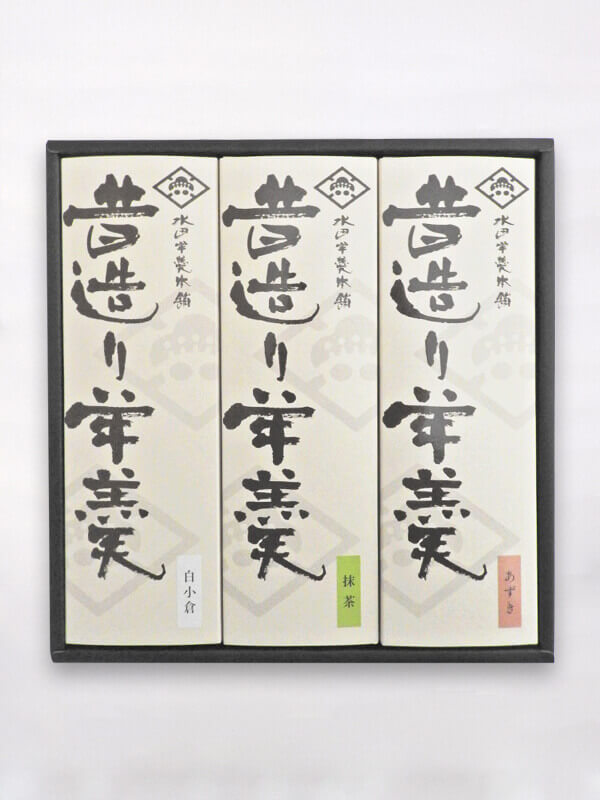 昔造り羊羹
水田羊羹本舗
白小倉
昔造り羊羹
水田羊羹本舗
抹茶
昔造り羊羹
水田羊羹本舗
あずき